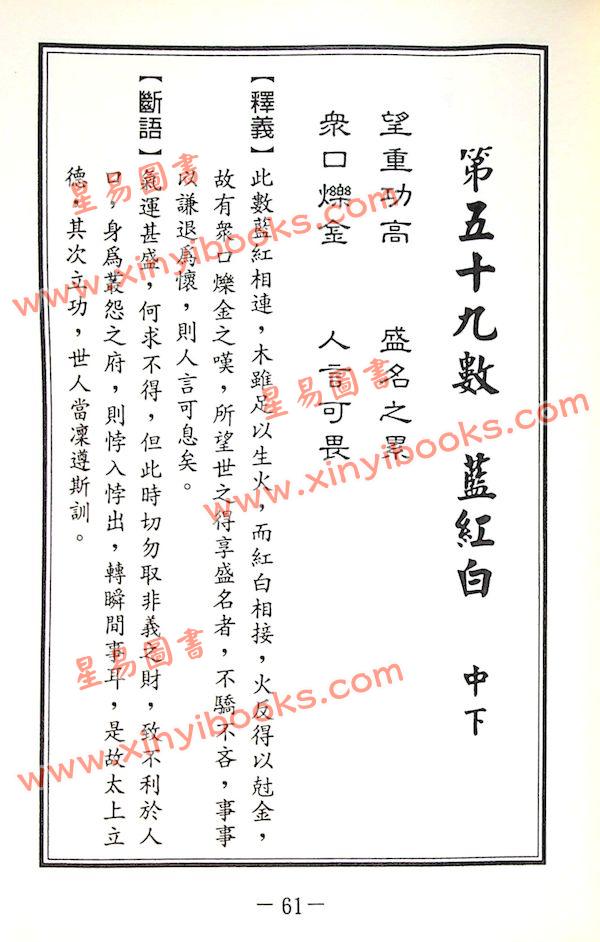 第五十九數 藍紅白 中下
望重功高 盛名之累
衆口爍金 人言可畏
【釋義】此數藍紅相連，木雖足以生火，而紅白相接，火反得以尅金，
故有衆口爍金之嘆，所望世之得享盛名者，不驕不吝，事事
以謙退爲懷，則人言可息矣。
【斷語】氣運甚盛，何求不得，但此時切勿取非義之財，致不利於人
口，身爲叢怨之府，則悖入悖出，轉瞬間事耳，是故太上立
德，其次立功，世人當凜遵斯訓。
星易圖書
www.xinyibooks.com
星易圖書
www.xinyibooks.com
星易圖書
www.xinyibooks.com
－61－